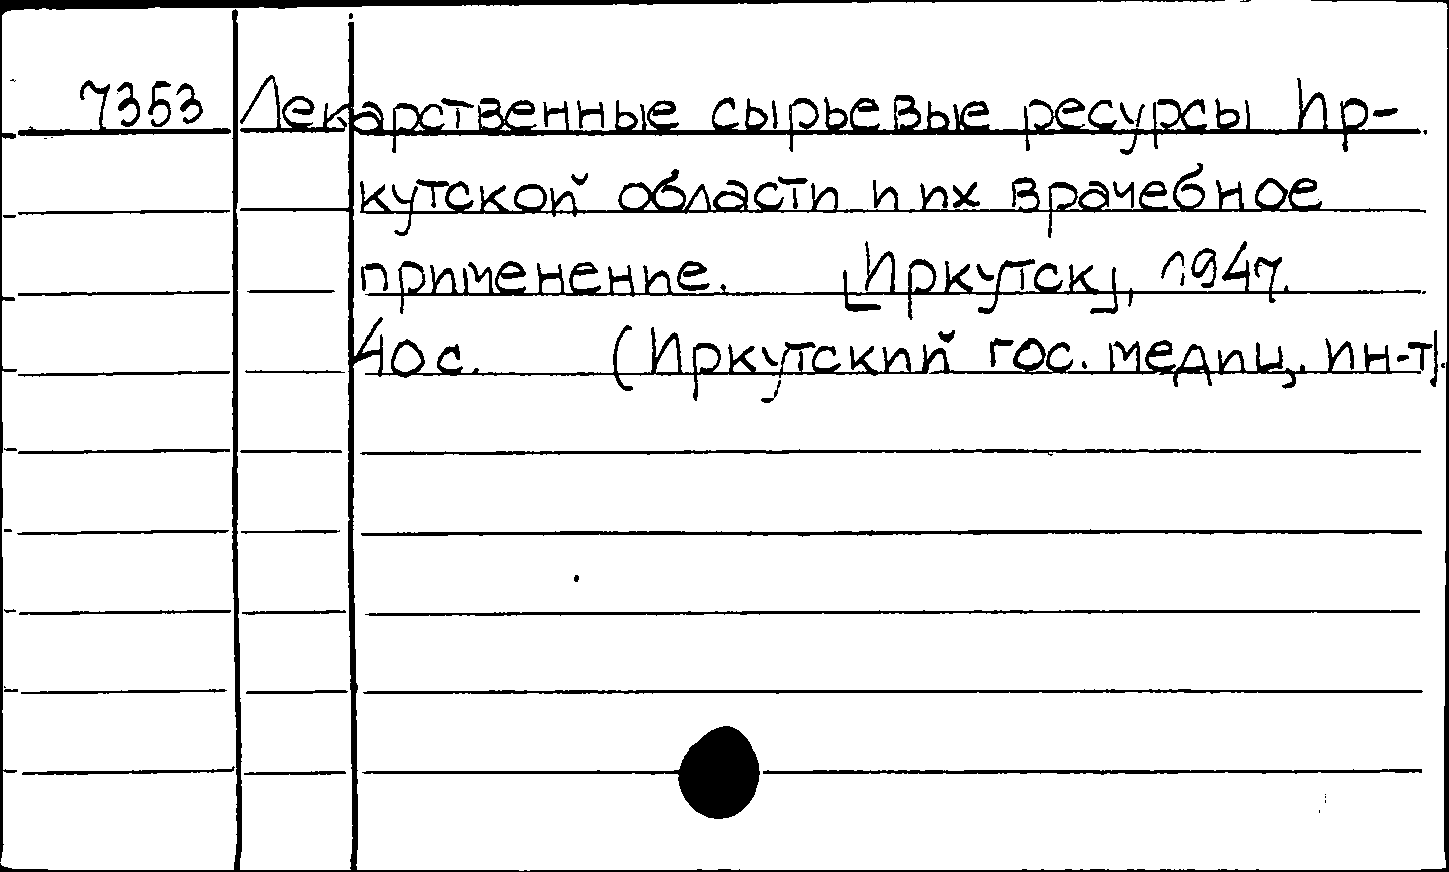 7353 Лекарственные сырьевые ресурсы Ир-
кутской области и их врачебное
применение. [Иркутск], 1947.
40 с. (Иркутский гос. медиц. ин-т).